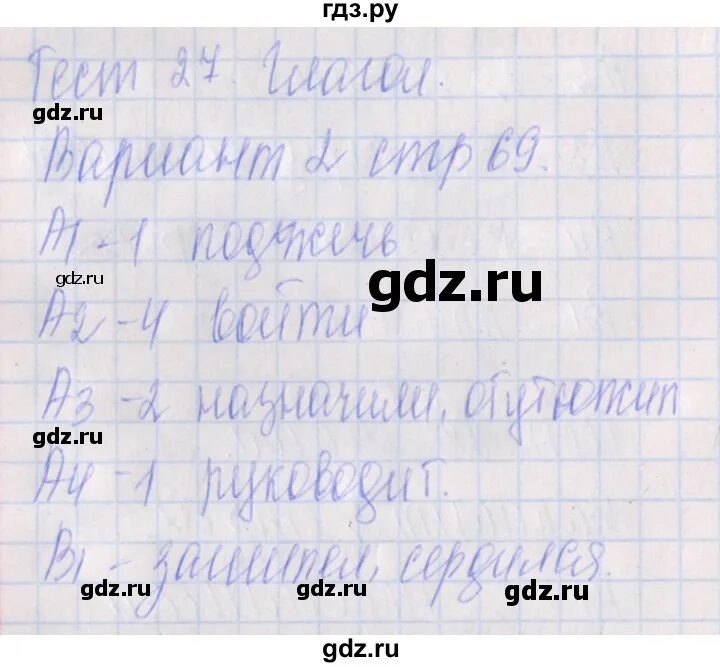 гдз.ру
Тест 27. Глагол.
gdz.ru
gdz.ru
Вариант 2 стр 69.
А1 - 1 поджечь
gdz.ru
gdz.ru
А2 - 4 войти
А3 - 2 назначили, отутюжил
gdz.ru
gdz.ru
А4 - 1 руководит.
В1 - зашипел, сердился.
gdz.ru
gdz.ru
gdz.ru
gdz.ru